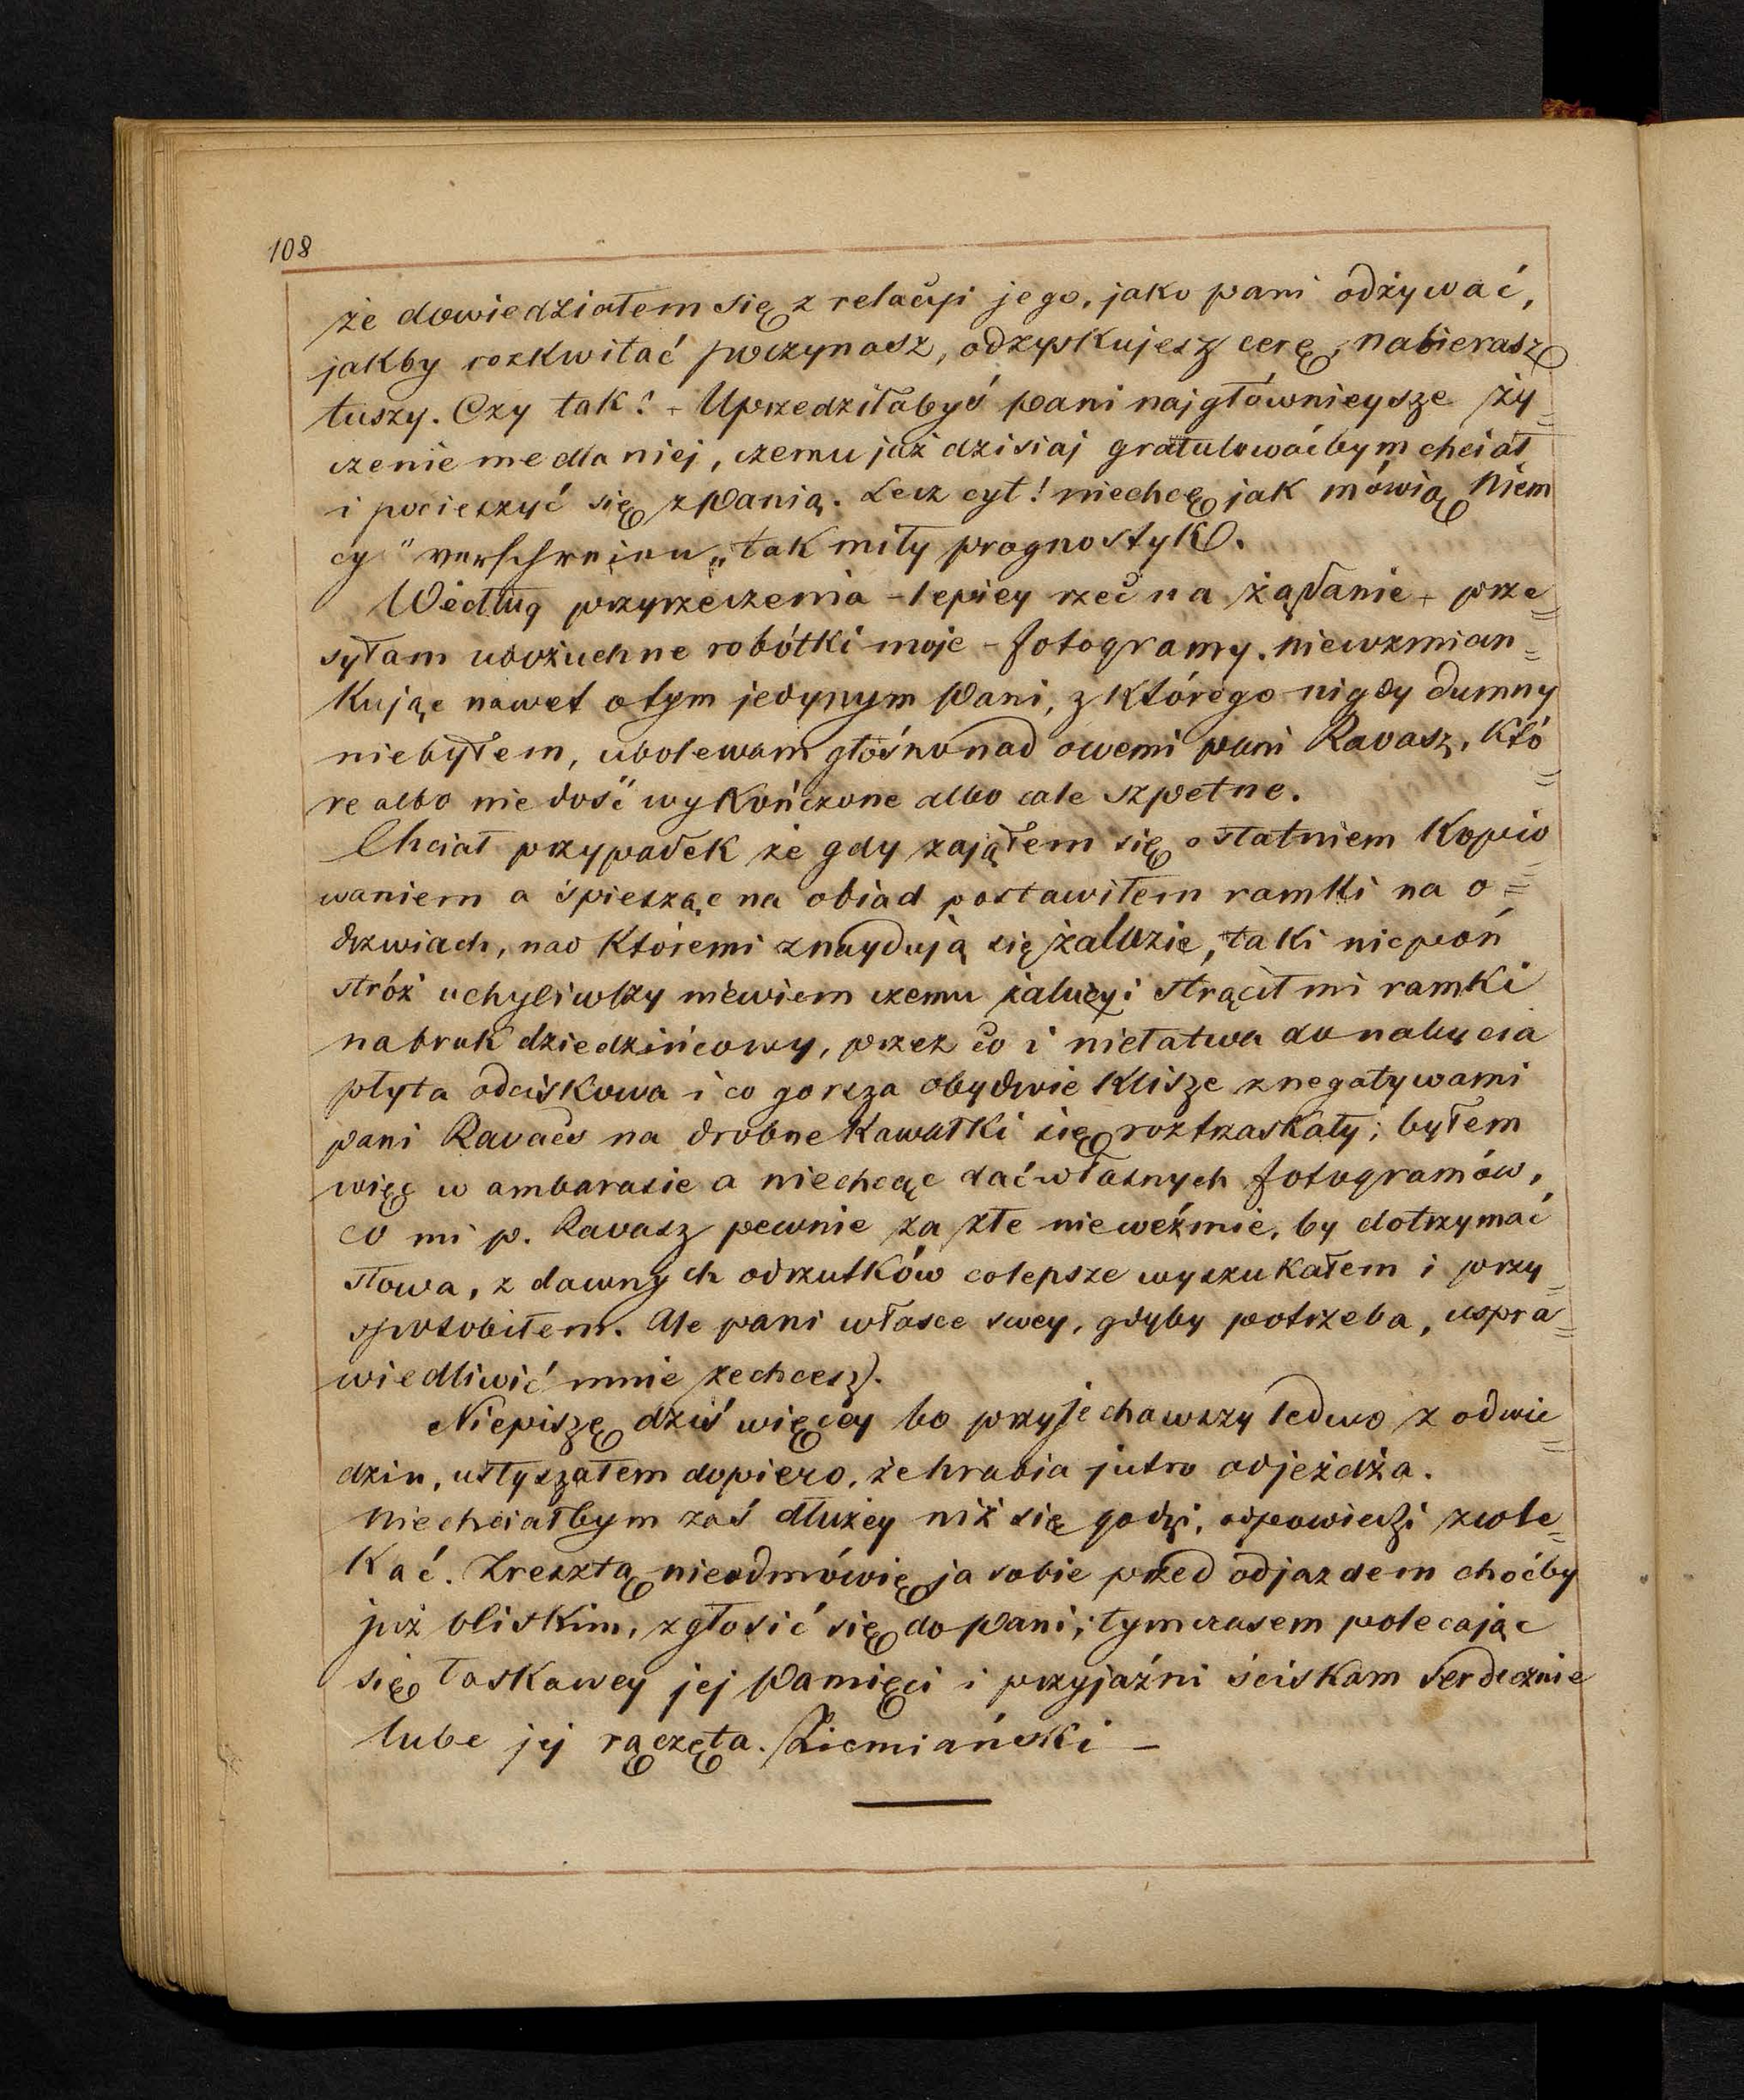 108
że dowiedziałem się z relacyi jego, jako pani odżywać,
jakby rozkwitać poczynasz, odzyskujesz cerę, nabierasz
tuszy. Czy tak? - Uprzedziłabyś pani najgłówniejsze ży=
czenie me dla niej, czemu już dzisiaj gratulowaćbym chciał
i pocieszyć się z Panią. Lecz cyt! niechcę jak mówią Niem
cy "verschreien" tak miły prognostyk.
Według przyrzeczenia - lepiey rzec na żądanie - prze=
syłam uboźuchne robótki moje - fotogramy. niewzmian=
kując nawet o tym jedynym Pani, z którego nigdy dumny
niebyłem, ubolewam głośno nad owemi pani Ravasz, któ=
re albo nie dość wykończone albo cale szpetne.
Chciał przypadek że gdy zająłem się ostatniem kopio=
waniem a śpiesząc na obiad postawiłem ramki na o=
drzwiach, nad któremi znaydują się żaluzie, taki niepoń
stróż uchyliwszy niewiem czemu żalucyi strącił mi ramki
na bruk dziedzińcowy, przez co i niełatwa do nabycia
płyta odciskowa i co gorsza obydwie klisze z negatywami
pani Ravacs na drobne kawałki się roztrzaskały; byłem
więc w ambarasie a niechcąc dać własnych fotogramów,
co mi p. Ravasz pewnie za złe nieweźmie, by dotrzymać
słowa, z dawnych odrzutków co lepsze wyszukałem i przy=
sposobiłem. Ale pani własce swey, gdyby potrzeba, uspra=
wiedliwić mnie zechcesz.
Niepiszę dziś więcey bo przyjechawszy ledwo z odwie=
dzin, usłyszałem dopiero, że hrabia jutro odjeżdża.
Niechciałbym zaś dłużey niż się godzi, odpowiedzi zwle=
kać. Zresztą nieodmówię ja sobie przed odjazdem choćby
już bliskim, zgłosić się do Pani; tymczasem polecając
się łaskawey jej Pamięci i przyjaźni ściskam serdecznie
lube jej rączęta. Ziemiański -